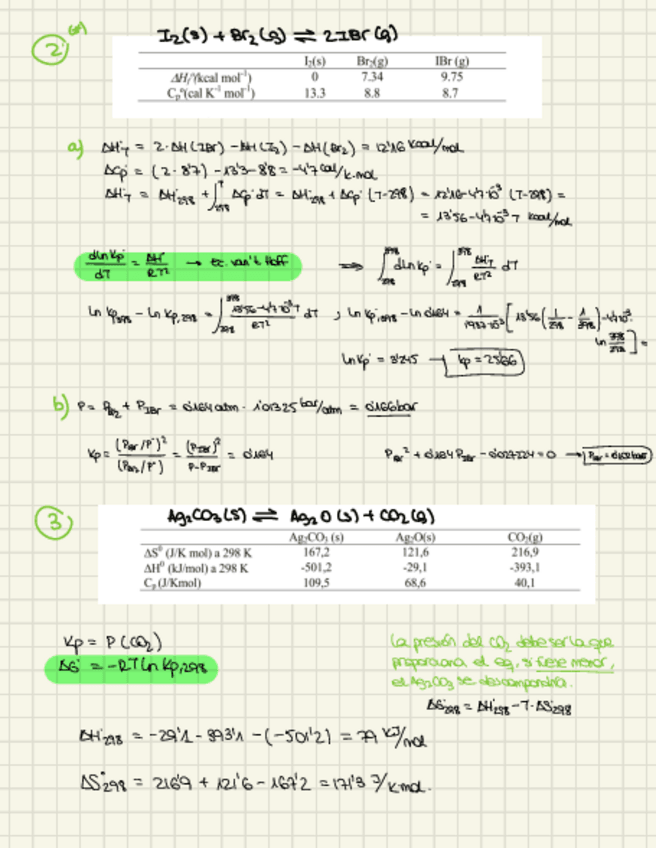 2 (*) I₂(s) + Br₂(g) ⇌ 2IBr(g)
I₂(s) Br₂(g) IBr (g)
ΔHf°(kcal mol⁻¹) 0 7.34 9.75
Cp°(cal K⁻¹ mol⁻¹) 13.3 8.8 8.7
a) ΔH°T = 2·ΔH(IBr) - ΔH(I₂) - ΔH(Br₂) = 12'16 kcal/mol
ΔCp° = (2·8'7) - 13'3 - 8'8 = -4'7 cal/k·mol
ΔH°T = ΔH°298 + ∫₂₉₈ᵀ ΔCp° dT = ΔH°298 + ΔCp° (T-298) = 12'16-4'7·10⁻³ (T-298) =
= 13'56-4'7·10⁻³ T kcal/mol
dlnKp°/dT = ΔH°/RT² → ec. van't Hoff ⟹ ∫ dlnKp° = ∫ ΔH°T/RT² dT
lnKp = 3'245 →
b) P = PBr₂ + PIBr = 0'164 atm · 1'01325 bar/atm = 0'166 bar
Kp = (PIBr/P°)²/(PBr₂/P°) = (PIBr)²/P-PIBr = 0'164
3 Ag₂CO₃(s) ⇌ Ag₂O(s) + CO₂(g)
Ag₂CO₃ (s) Ag₂O(s) CO₂(g)
ΔS⁰ (J/K mol) a 298 K 167,2 121,6 216,9
ΔH⁰ (kJ/mol) a 298 K -501,2 -29,1 -393,1
Cp (J/Kmol) 109,5 68,6 40,1
Kp = P(CO₂)
ΔG° = -RT ln Kp,298
La presión del CO₂ debe ser la que
proporciona el eq, si fuese menor,
el Ag₂CO₃ se descompondría.
ΔG°298 = ΔH°298 - T·ΔS°298
ΔH°298 = -29'1 - 393'1 - (-501'2) = 79 kJ/mol
ΔS°298 = 216'9 + 121'6 - 167'2 = 171'3 J/kmol.